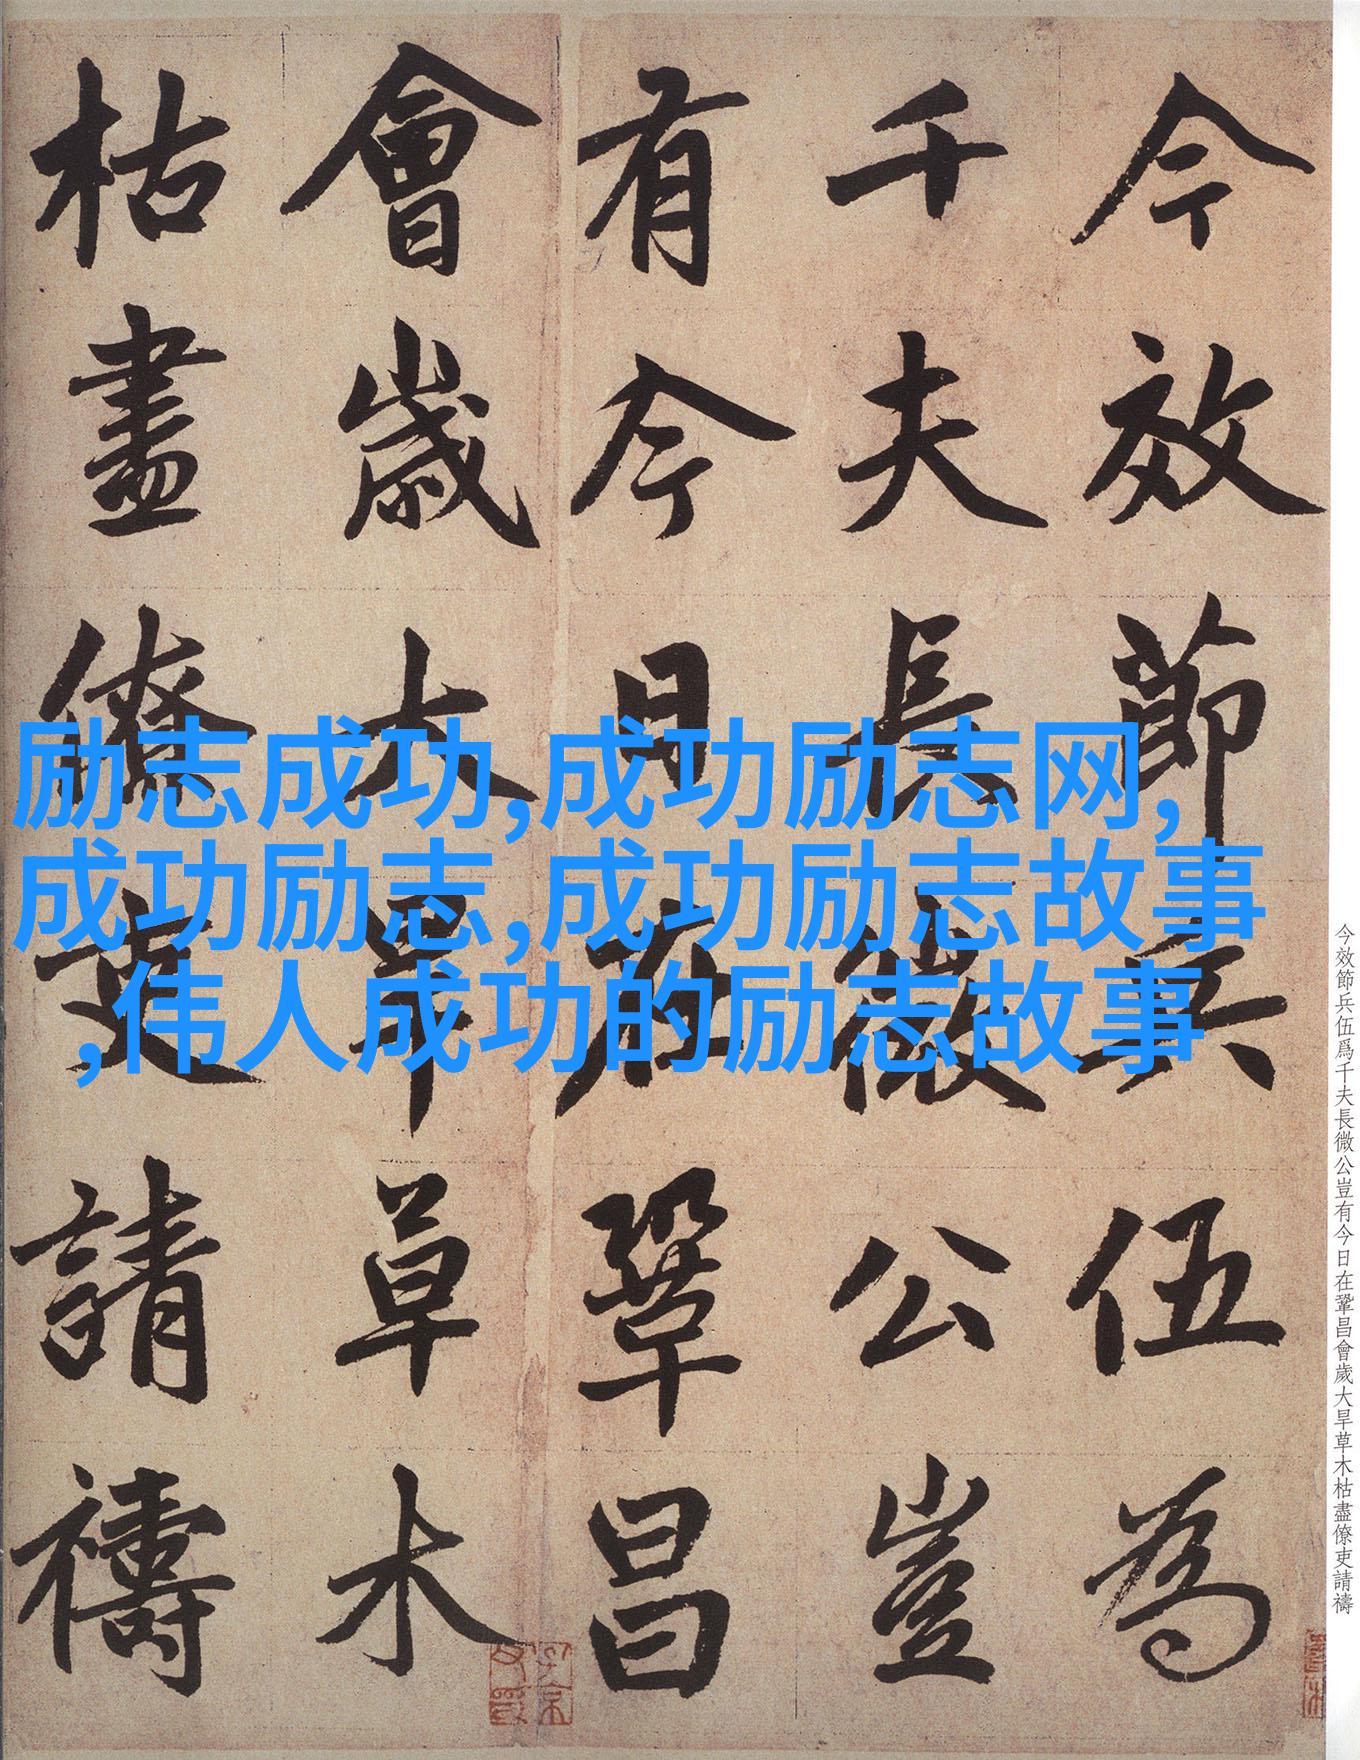 今效節兵伍為
千夫長微公豈
有今日在鞏昌
會歲大旱草木
枯盡僚吏請禱
励志成功,成功励志网,
成功励志,成功励志故事
,伟人成功的励志故事
今效節兵伍爲千夫長微公豈有今日在鞏昌會歲大旱草木枯盡僚吏請禱